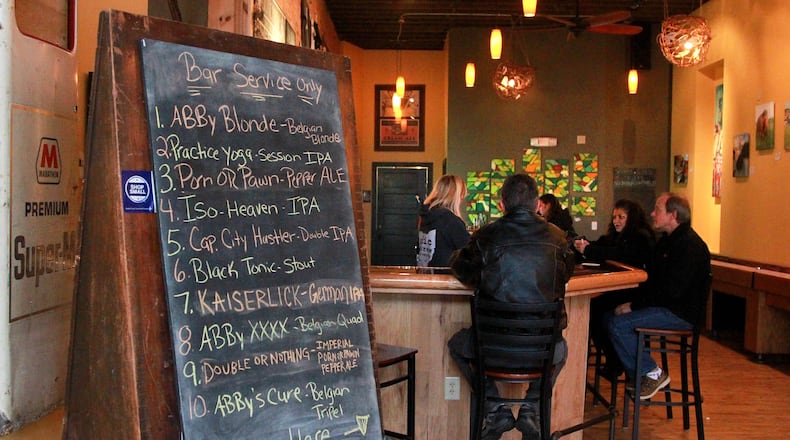 Bar Service Only
1. ABBy Blonde - Belgian Blonde
2. Practice Yoga - Session IPA
3. Porn OR Pawn - Pepper ALE
4. Iso-Heaven - IPA
5. Cap City Hustler - Double IPA
6. Black Tonic - Stout
7. KAISERLICK - German IPA
8. ABBy XXXX - Belgian Quad
9. DOUBLE OR NOTHING - IMPERIAL PORN OR PAWN PEPPER ALE
10. ABBy's Cure - Belgian Tripel
Here
M
MARATHON
PREMIUM
Super-M
SHOP
SMALL